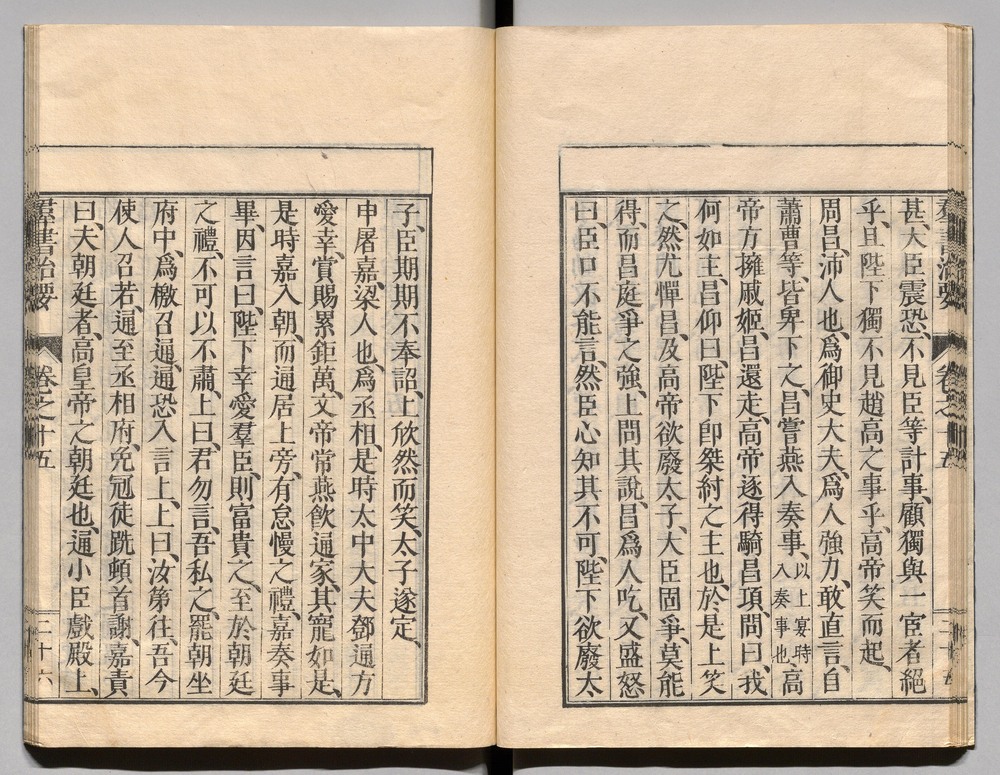 羣書治要 卷之十五
甚、大臣震恐、不見臣等計事、顧獨與一宦者絕
乎、且陛下獨不見趙高之事乎、高帝笑而起、
周昌、沛人也、爲御史大夫、爲人強力、敢直言、自
蕭曹等、皆卑下之、昌嘗燕入奏事、以上宴時入奏事也、高
帝方擁戚姬、昌還走、高帝逐得、騎昌項、問曰、我
何如主、昌仰曰、陛下卽桀紂之主也、於是上笑
之、然尤憚昌、及高帝欲廢太子、大臣固爭、莫能
得、而昌庭爭之強、上問其說、昌爲人吃、又盛怒
曰、臣口不能言、然臣心知其不可、陛下欲廢太
子、臣期期不奉詔、上欣然而笑、太子遂定、
申屠嘉、梁人也、爲丞相、是時太中大夫鄧通方
愛幸、賞賜累鉅萬、文帝常燕飮通家、其寵如是、
是時嘉入朝、而通居上旁、有怠慢之禮、嘉奏事
畢、因言曰、陛下幸愛羣臣、則富貴之、至於朝廷
之禮、不可以不肅、上曰、君勿言、吾私之、罷朝坐
府中、爲檄召通、通恐、入言上、上曰、汝第往、吾今
使人召若、通至丞相府、免冠徒跣、頓首謝、嘉責
曰、夫朝廷者、高皇帝之朝廷也、通小臣戲殿上、
羣書治要 卷之十五 二十六